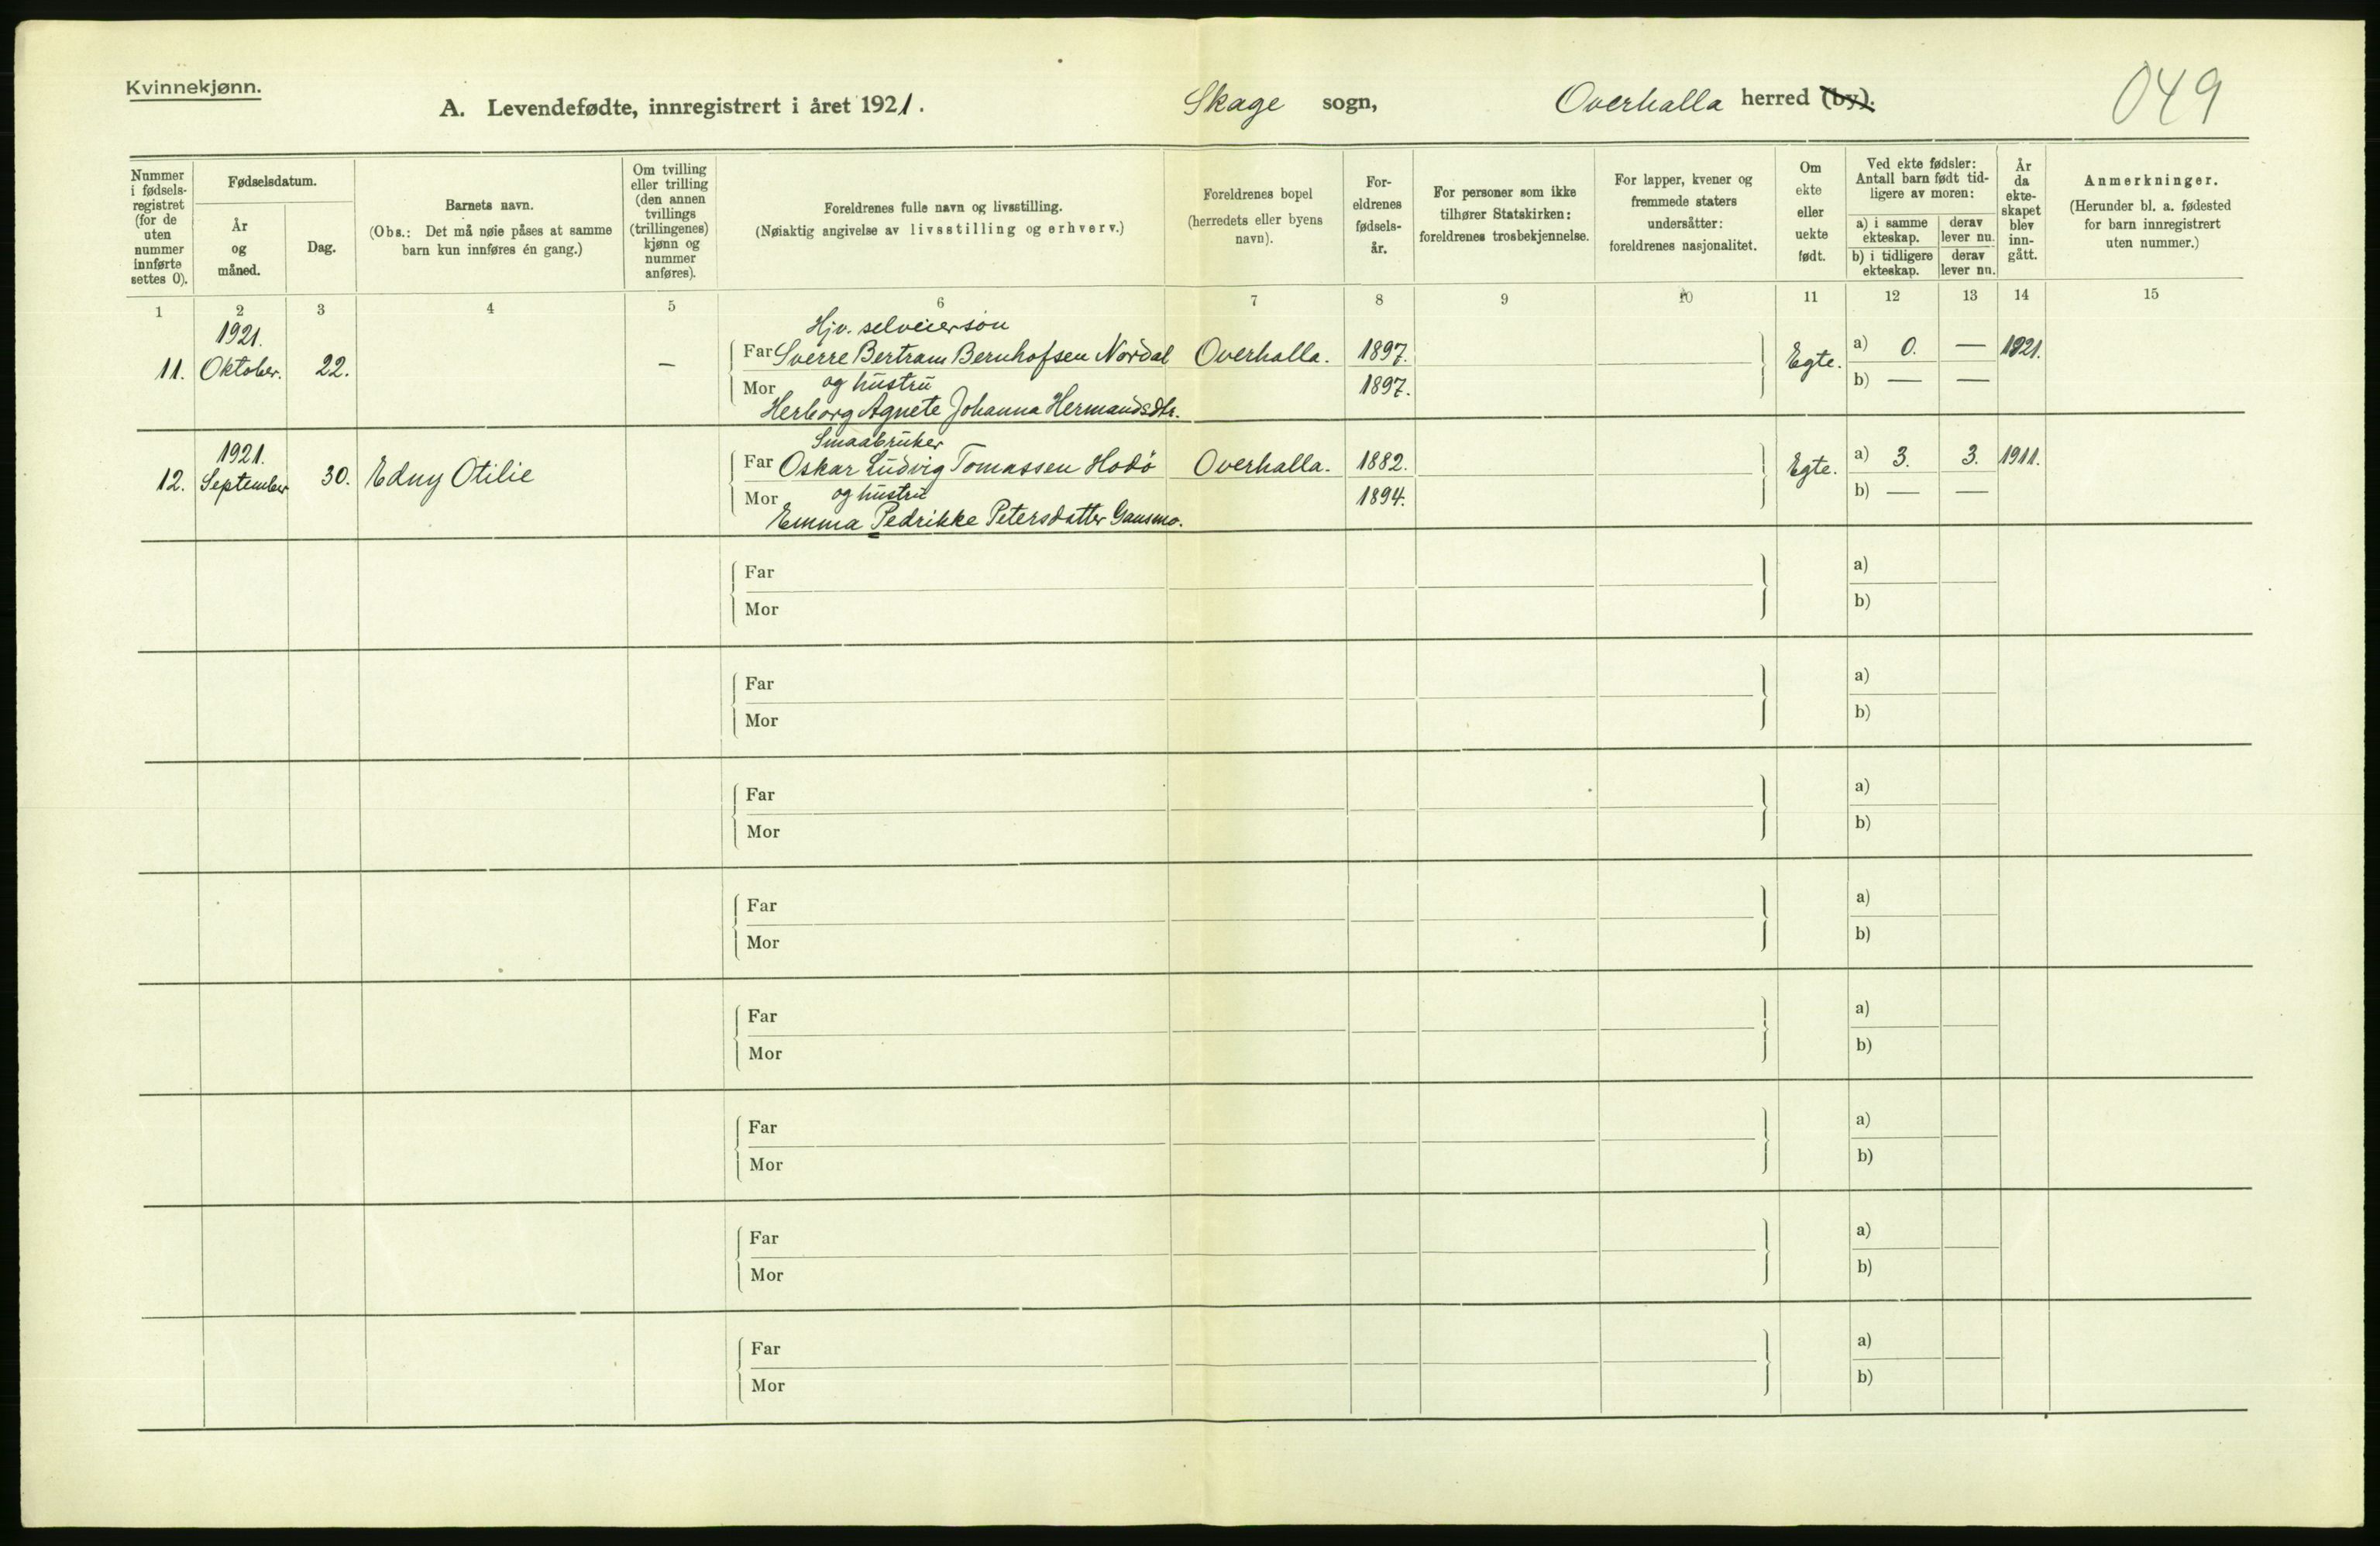 Kvinnekjønn.
A. Levendefødte, innregistrert i året 1921. Skage sogn, Overhalla herred (by). 049
Nummer i fødsels-registret (for de uten nummer innførte settes 0).
Fødselsdatum.
År og måned.
Dag.
Barnets navn.
(Obs.: Det må nøie påses at samme barn kun innføres én gang.)
Om tvilling eller trilling (den annen tvillings (trillingenes) kjønn og nummer anføres).
Foreldrenes fulle navn og livsstilling.
(Nøiaktig angivelse av livsstilling og erhverv.)
Foreldrenes bopel (herredets eller byens navn).
For-eldrenes fødsels-år.
For personer som ikke tilhører Statskirken: foreldrenes trosbekjennelse.
For lapper, kvener og fremmede staters undersåtter: foreldrenes nasjonalitet.
Om ekte eller uekte født.
Ved ekte fødsler: Antall barn født tid-ligere av moren:
a) i samme ekteskap. derav lever nu.
b) i tidligere ekteskap. derav lever nu.
År da ekte-skapet blev inn-gått.
Anmerkninger.
(Herunder bl. a. fødested for barn innregistrert uten nummer.)
1 2 3 4 5 6 7 8 9 10 11 12 13 14 15
1921. Hjv. selveiersön
11. Oktober. 22. — Far Sverre Bertram Bernhofsen Nordal Overhalla. 1897. Egte. a) 0. — 1921.
Mor og hustru 1897. b) — —
Herborg Agnete Johanna Hermandsdtr.
1921. Smaabruker
12. September 30. Edny Otilie Far Oskar Ludvig Tomassen Hodö Overhalla. 1882. Egte. a) 3. 3. 1911.
Mor og hustru 1894. b) — —
Emma Pedrikke Petersdatter Gansmo.
Far a)
Mor b)
Far a)
Mor b)
Far a)
Mor b)
Far a)
Mor b)
Far a)
Mor b)
Far a)
Mor b)
Far a)
Mor b)
Far a)
Mor b)